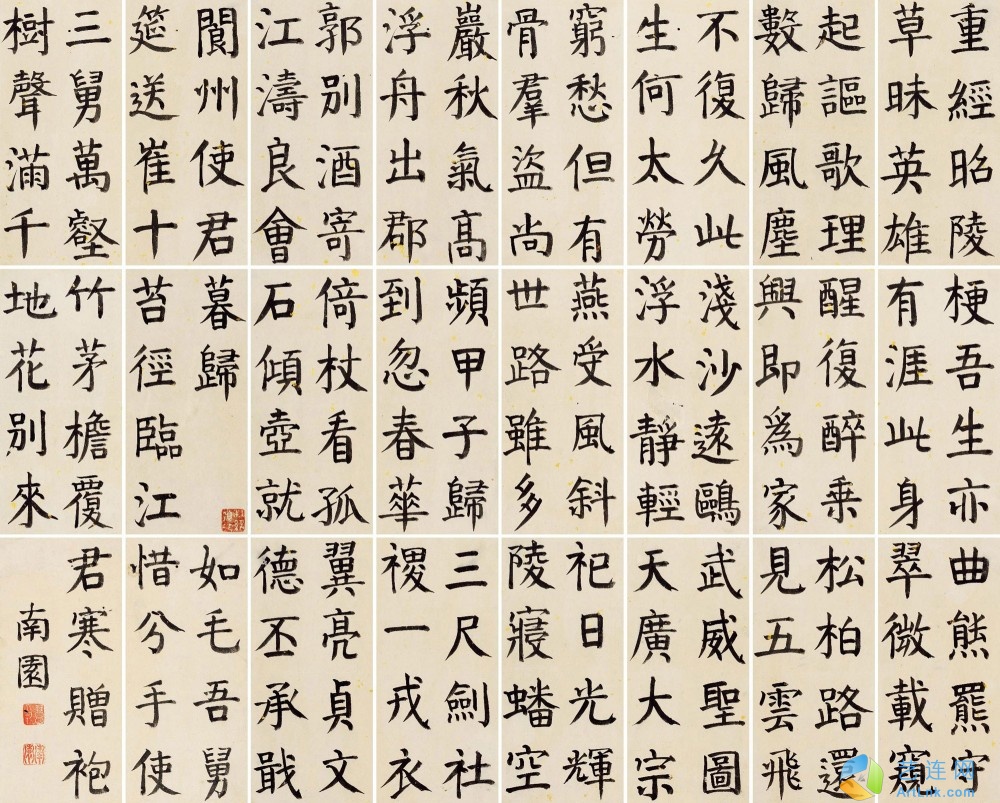 重經昭陵
草昧英雄
起謳歌理
數歸風塵
不復久此
生何太勞
窮愁但有
骨羣盜尚
巖秋氣高
浮舟出郡
郭別酒寄
江濤良會
閬州使君
筵送崔十
三舅萬壑
樹聲滿千
梗吾生亦
有涯此身
醒復醉乘
興即為家
淺沙遠鷗
浮水靜輕
燕受風斜
世路雖多
頻甲子歸
到忽春華
倚杖看孤
石傾壺就
暮歸
苔徑臨江
竹茅檐覆
地花別來
曲熊羆守
翠微載窺
松柏路還
見五雲飛
武威聖圖
天廣大宗
祀日光輝
陵寢蟠空
三尺劍社
禝一戎衣
翼亮貞文
德丕承戢
如毛吾舅
惜分手使
君寒贈袍
南園
艺连网
ArtLnk.com